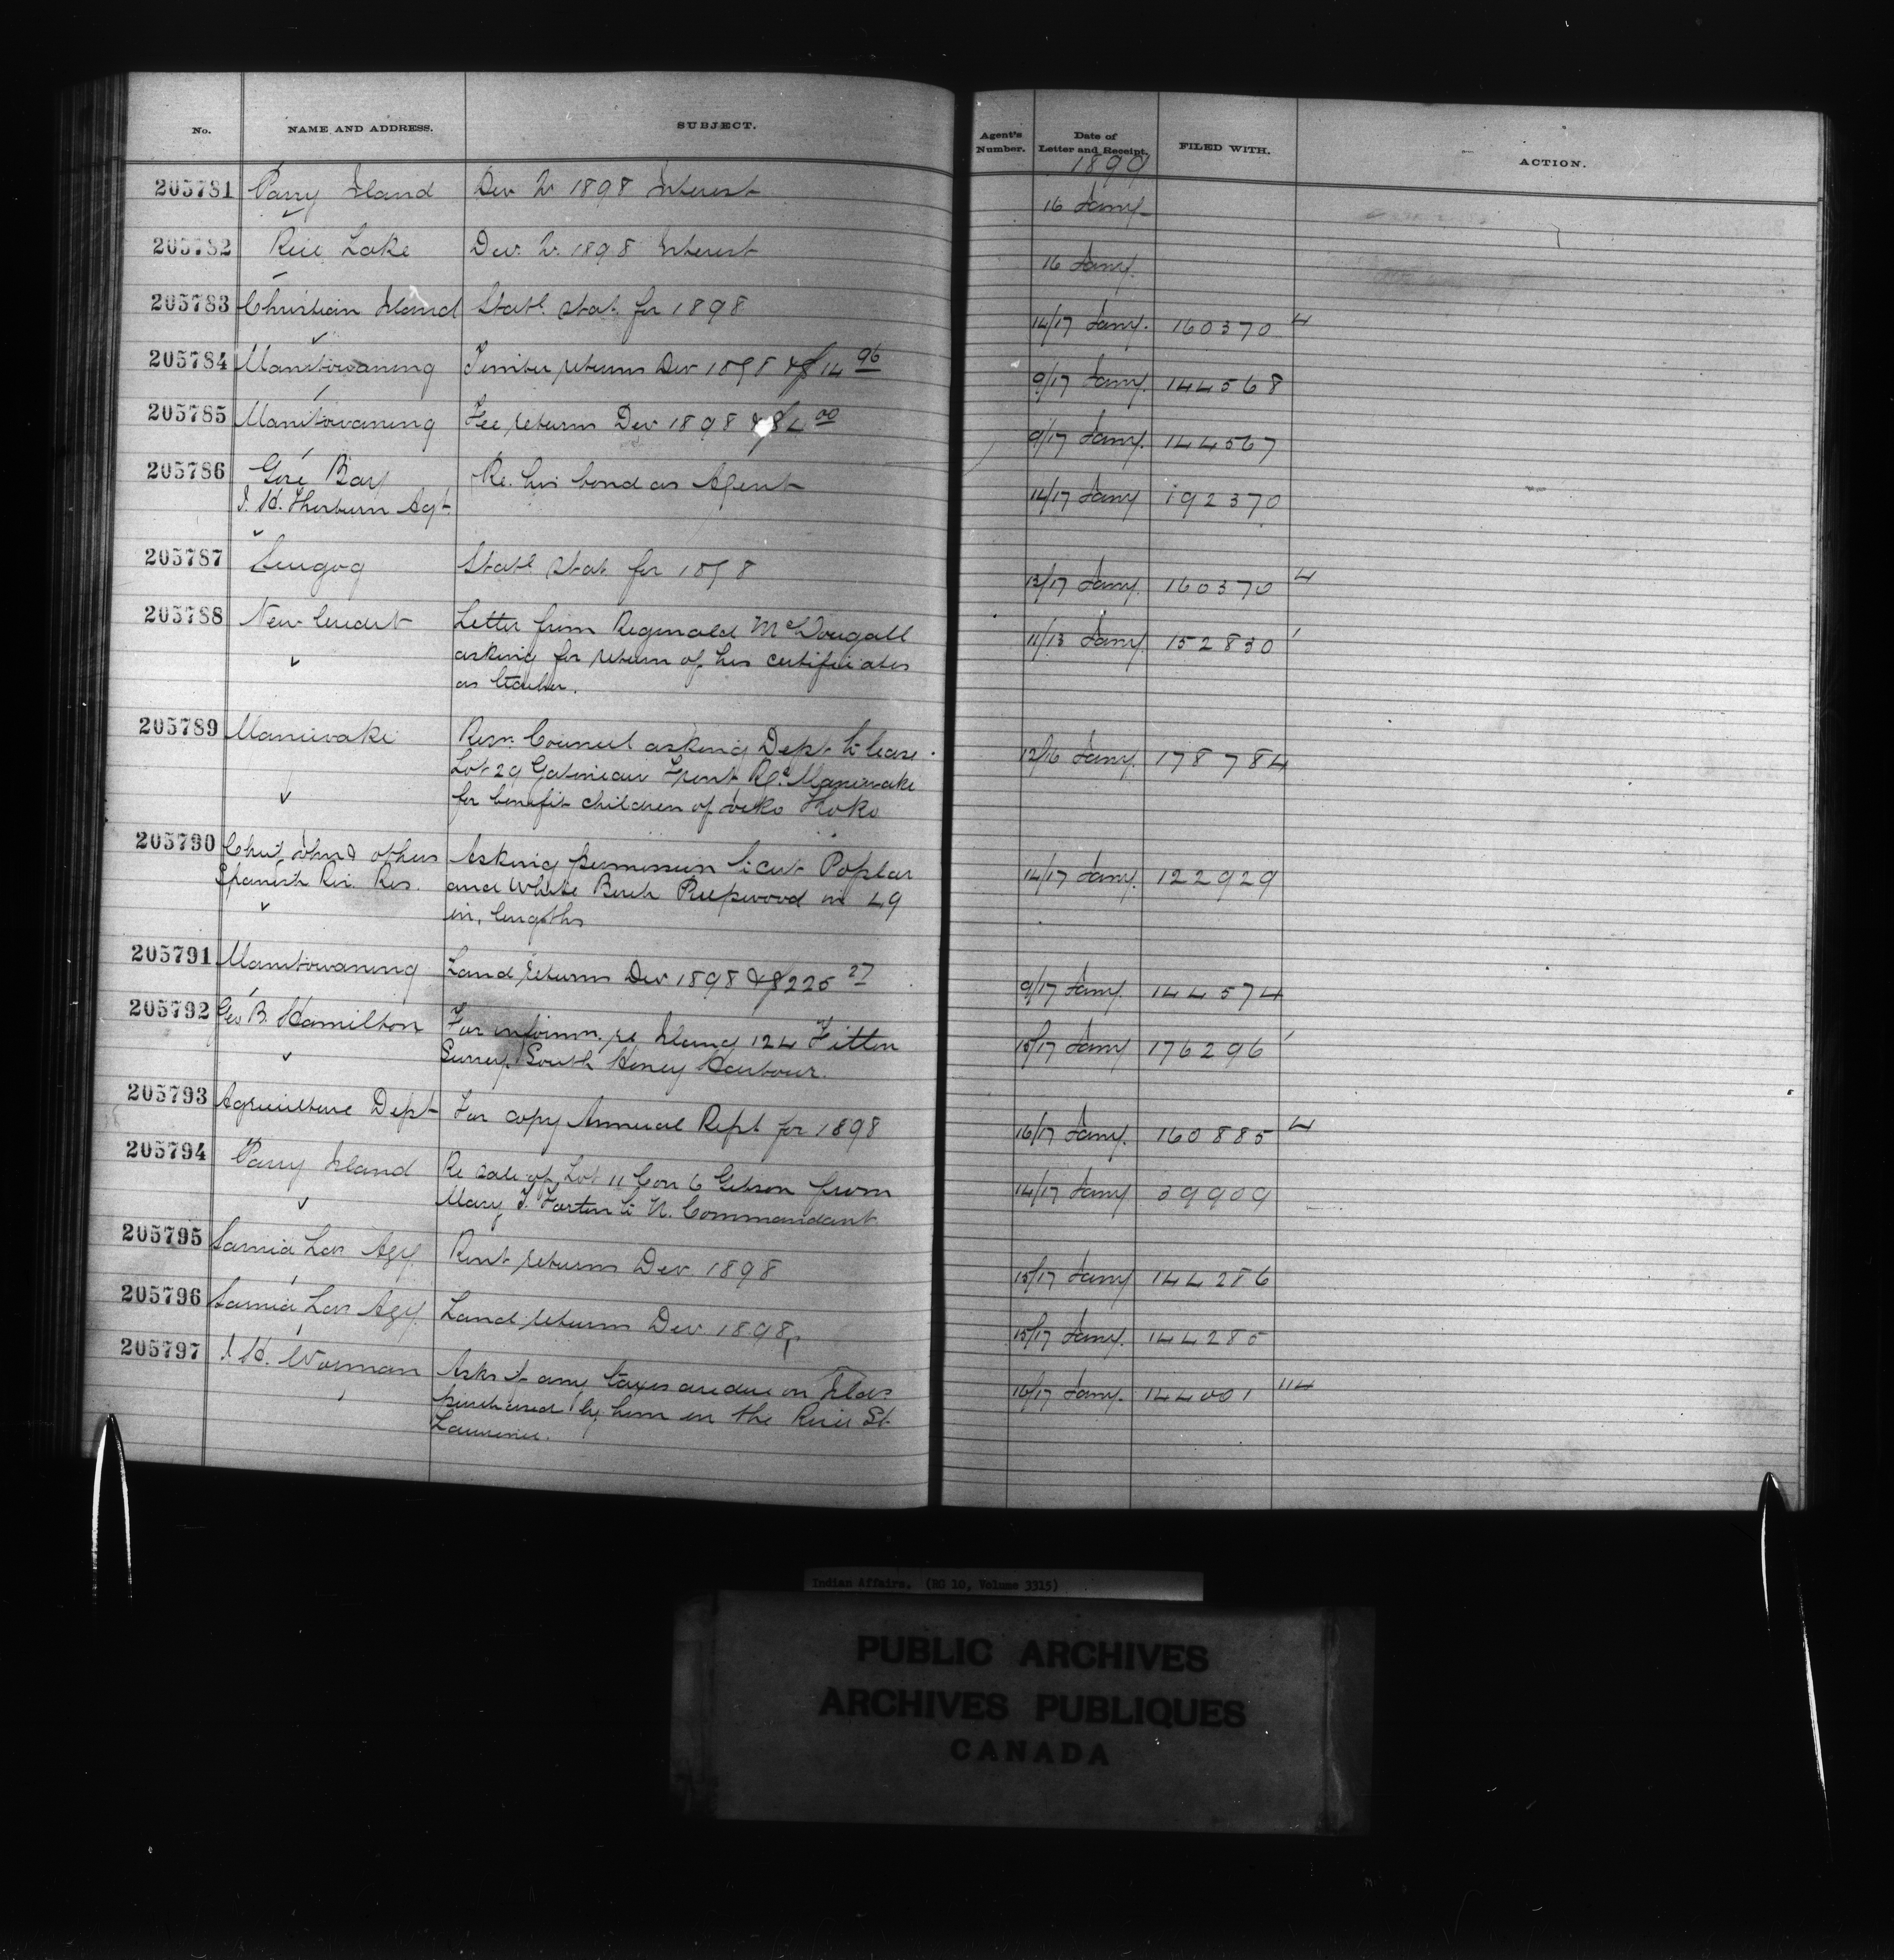 No. NAME AND ADDRESS. SUBJECT. Agent's Number. Date of Letter and Receipt. FILED WITH. ACTION.
1899
205781 Parry Island Dec Qr 1898 Interest 16 Jany
205782 Rice Lake Dec. Qr. 1898 Interest 16 Jany.
205783 Christian Island Statl. Stat. for 1898 14/17 Jany. 160370 4
205784 Manitowaning Timber returns Dec 1898 & $14 96 9/17 Jany. 144568
205785 Manitowaning Fee returns Dec 1898 & $4 00 9/17 Jany. 144567
205786 Gore Bay Re. his bond as Agent 14/17 Jany 192370
J. H. Thorburn Agt.
205787 Scugog Statl. Stat. for 1898 13/17 Jany. 160370 4
205788 New Credit Letter from Reginald McDougall 11/13 Jany. 152830 1
asking for return of his certificates
as teacher.
205789 Maniwaki Resn. Council asking Dept. to lease 12/16 Jany. 178784
Lot 29 Gatineau Front Rge Maniwake
for benefit children of Koko
205790 Chief John & others Asking permission to cut Poplar 14/17 Jany. 122929
Spanish Riv. Res. and White Birch Pulpwood in 49
in. lengths
205791 Manitowaning Land returns Dec 1898 & $225 27 9/17 Jany. 144574
205792 Geo B. Hamilton For informn. re Island 124 Fitton 15/17 Jany 176296 1
Survey. South Honey Harbour.
205793 Agriculture Dept For copy Annual Rept for 1898 16/17 Jany. 160885 4
205794 Parry Island Re sale of Lot 11 Con 6 Gibson from 14/17 Jany 39909
Mary J. to N. Commandant
205795 Sarnia Lan Agy. Rent returns Dec. 1898 15/17 Jany 144286
205796 Sarnia Lan Agy. Land returns Dec. 1898 15/17 Jany. 144285
205797 J. H. Worman Asks if any taxes are due on Islds 16/17 Jany. 144001 114
purchased by him in the River St.
Lawrence.
Indian Affairs. (RG 10, Volume 3315)
PUBLIC ARCHIVES
ARCHIVES PUBLIQUES
CANADA